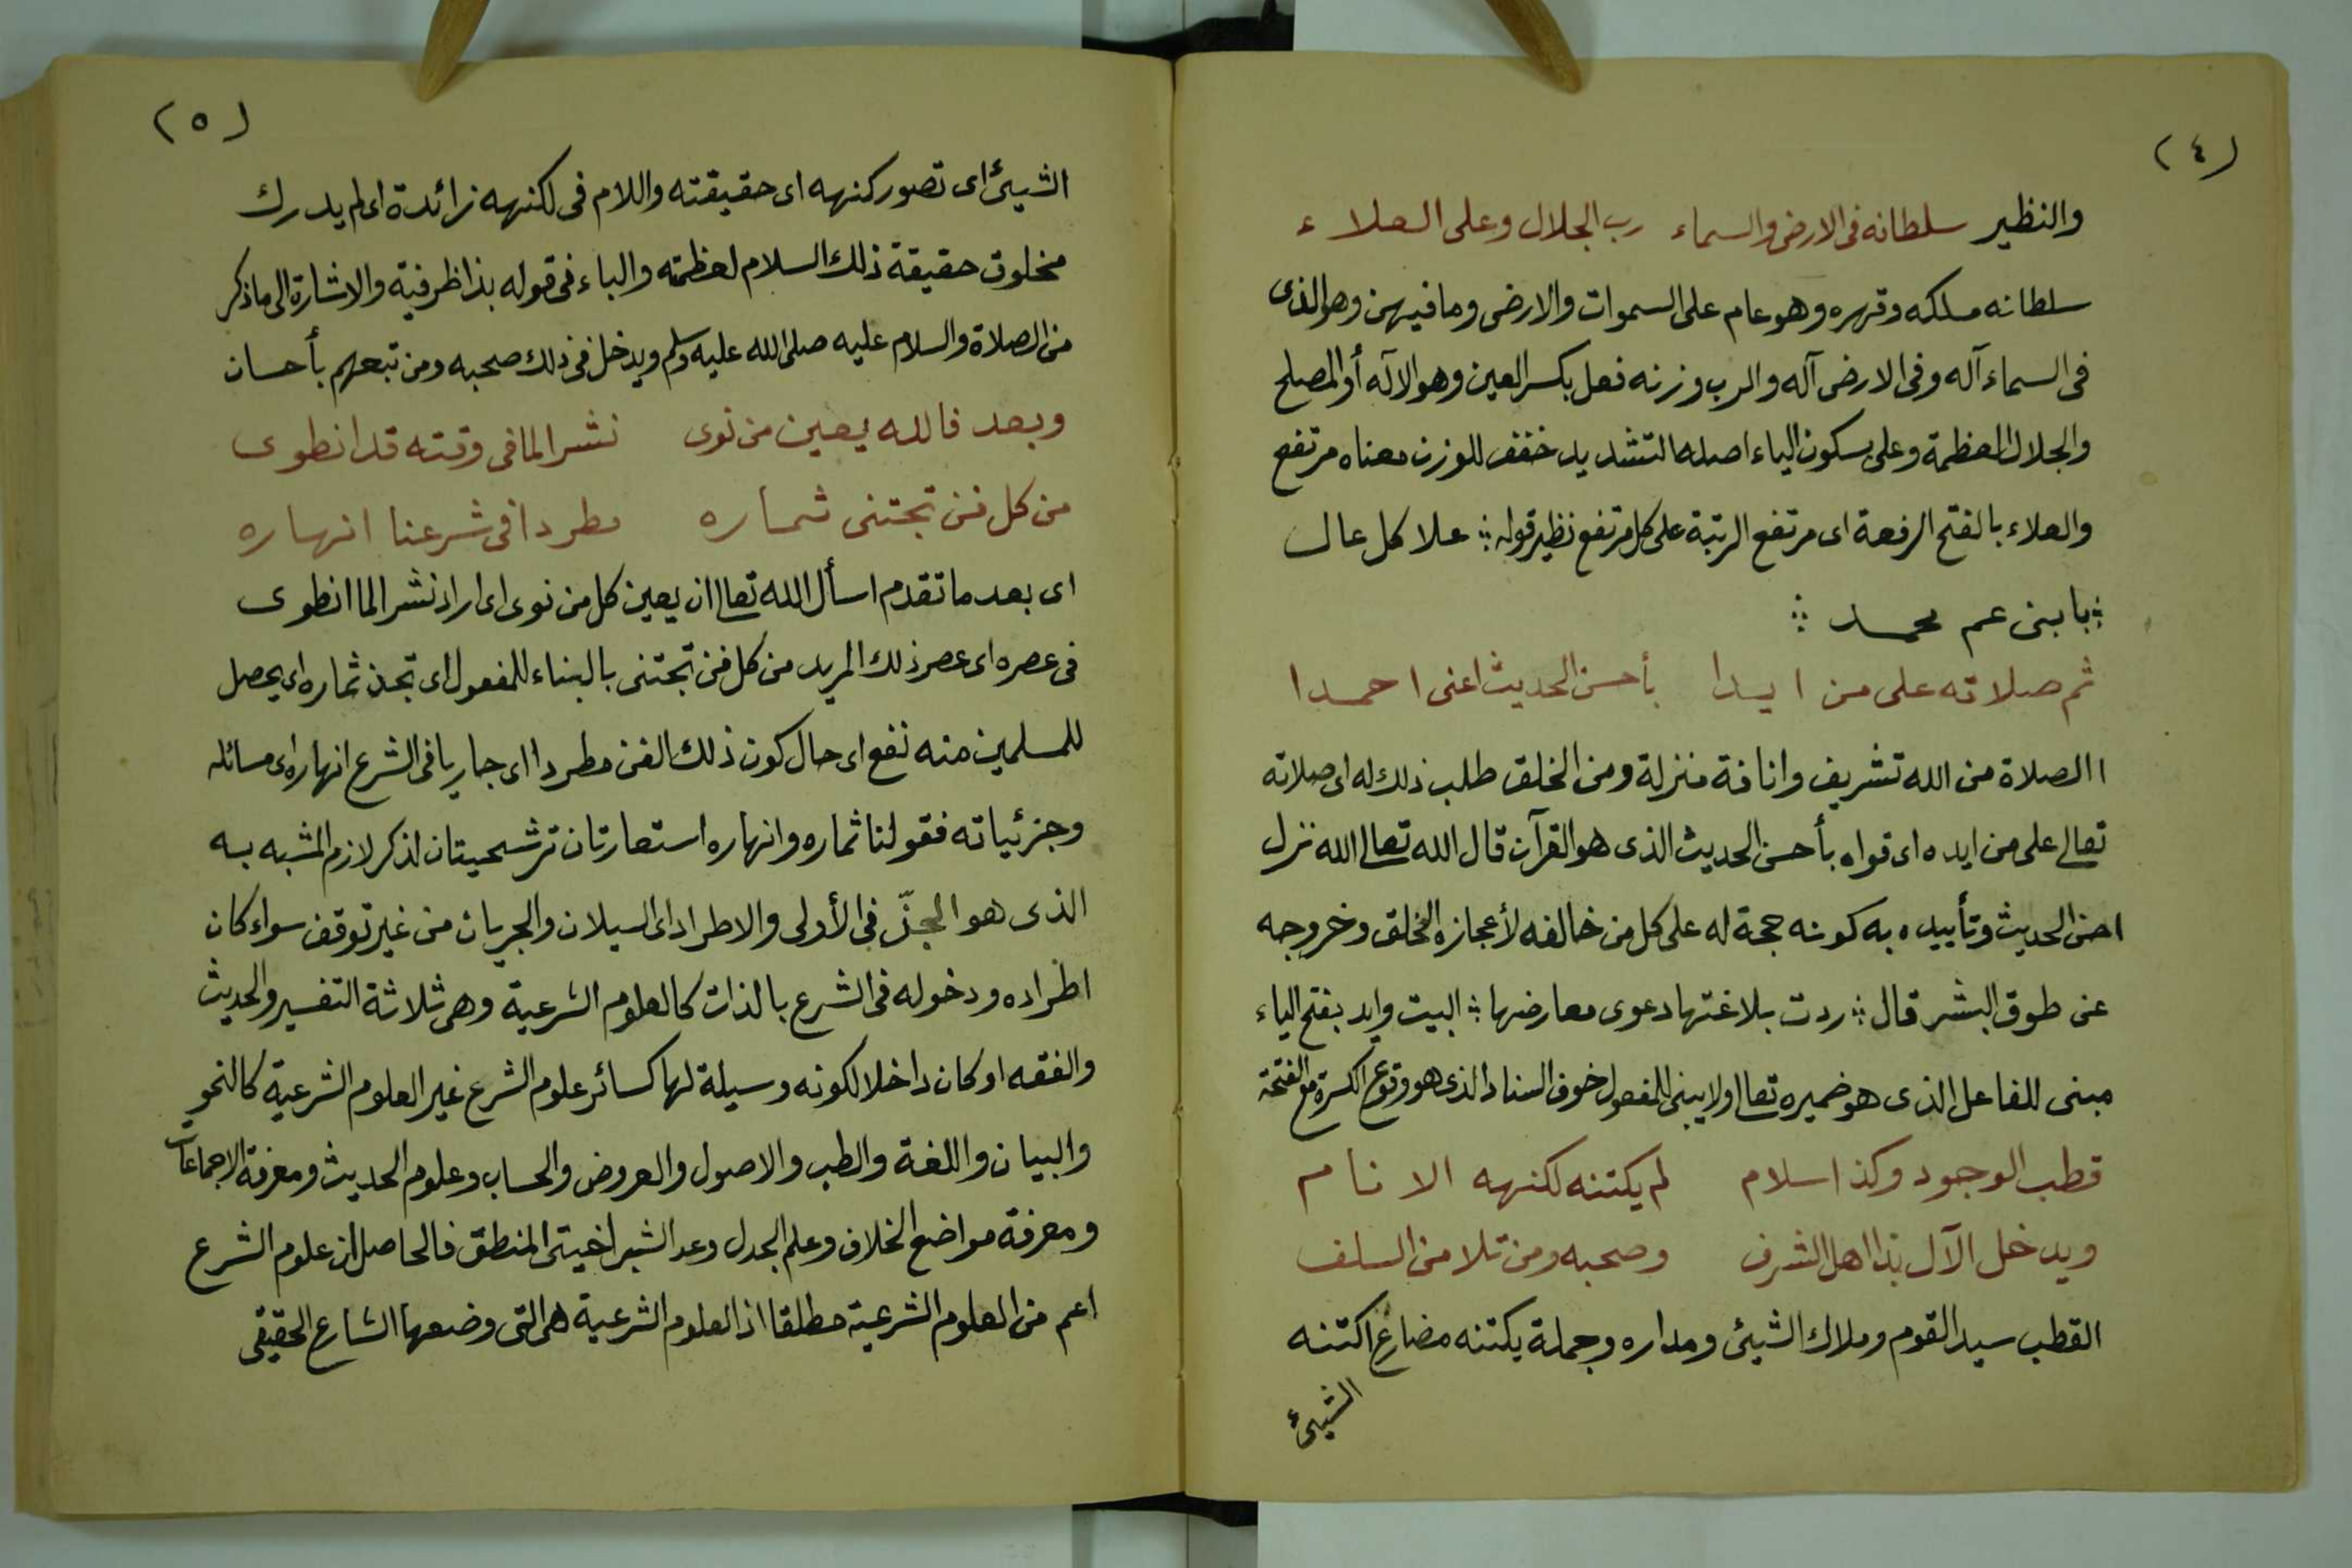 (٤)
والنظير سلطانه فى الارض والسماء رب الجلال وعلى العلاء
سلطانه ملكه وقهره وهو عام على السموات والارض ومافيهن وهو الذى
فى السماء آله وفى الارض آله والرب وزنه فعل بكسر العين وهو الآله أو المصلح
والجلال العظمة وعلى بسكون الياء اصله التشديد خفف للوزن معناه مرتفع
والعلاء بالفتح الرفعة اى مرتفع الرتبة على كل مرتفع نظير قوله ؞ علا كل عال
؞ بابنى عم محمد ؞
ثم صلاته على من ايدا بأحسن الحديث اعنى احمدا
االصلاة من الله تشريف وانافة منزلة ومن الخلق طلب ذلك له اى صلاته
تعالى على من ايده اى قواه بأحسن الحديث الذى هو القرآن قال الله تعالى الله نزل
احن الحديث وتأييده به كونه حجة له على كل من خالفه لأعجازه الخلق وخروجه
عن طوق البشر قال ؞ ردت بلاغتها دعوى معارضها ؞ البيت وايد بفتح الياء
مبنى للفاعل الذى هو ضميره تعالى اولا يبنى للمفعول خوف السناد الذى هو وقوع الكسرة مع الفتحة
قطب الوجود وكذا سلام لم يكتنه لكنهه الانام
ويدخل الآل بذا اهل الشرف وصحبه ومن تلا من السلف
القطب سيد القوم وملاك الشيئ ومداره وجملة يكتنه مضارع اكتنه
الشيئ
(٥)
الشيئ اى تصور كنهه اى حقيقته واللام فى لكنهه زائدة اى لم يدرك
مخلوق حقيقة ذلك السلام لعظمته والباء فى قوله بذا ظرفية والاشارة الى ما ذكر
من الصلاة والسلام عليه صلى الله عليه وسلم ويدخل فى ذلك صحبه ومن تبعهم بأحسان
وبعد فالله يعين من نوى نشرا لما فى وقته قد انطوى
من كل فن تجتنى ثماره مطردا فى شرعنا انهاره
اى بعد ما تقدم اسأل الله تعالى ان يعين كل من نوى اى اراد نشرا لما انطوى
فى عصره اى عصر ذلك المريد من كل فن تجتنى بالبناء للمفعول اى تجذ ثماره اى يحصل
للمسلمين منه نفع اى حال كون ذلك الفن مطردا اى جاريا فى الشرع انهاره اى مسائله
وجزئياته فقولنا ثماره وانهاره استعارتان ترشحيتان لذكر لازم المشبه به
الذى هو الجذّ فى الأولى والاطراد اى السيلان والجريان من غير توقف سواء كان
اطراده ودخوله فى الشرع بالذات كالعلوم الشرعية وهى ثلاثة التفسير والحديث
والفقه او كان داخلا لكونه وسيلة لها كسائر علوم الشرع غير العلوم الشرعية كالنحو
والبيان واللغة والطب والاصول والعروض والحساب وعلوم الحديث ومعرفة الاجماعات
ومعرفة مواضع الخلاف وعلم الجدل وعد الشبراخيتى المنطق فالحاصل ان علوم الشرع
اعم من العلوم الشرعية مطلقا اذ العلوم الشرعية هى التى وضعها الشارع الحقيقى